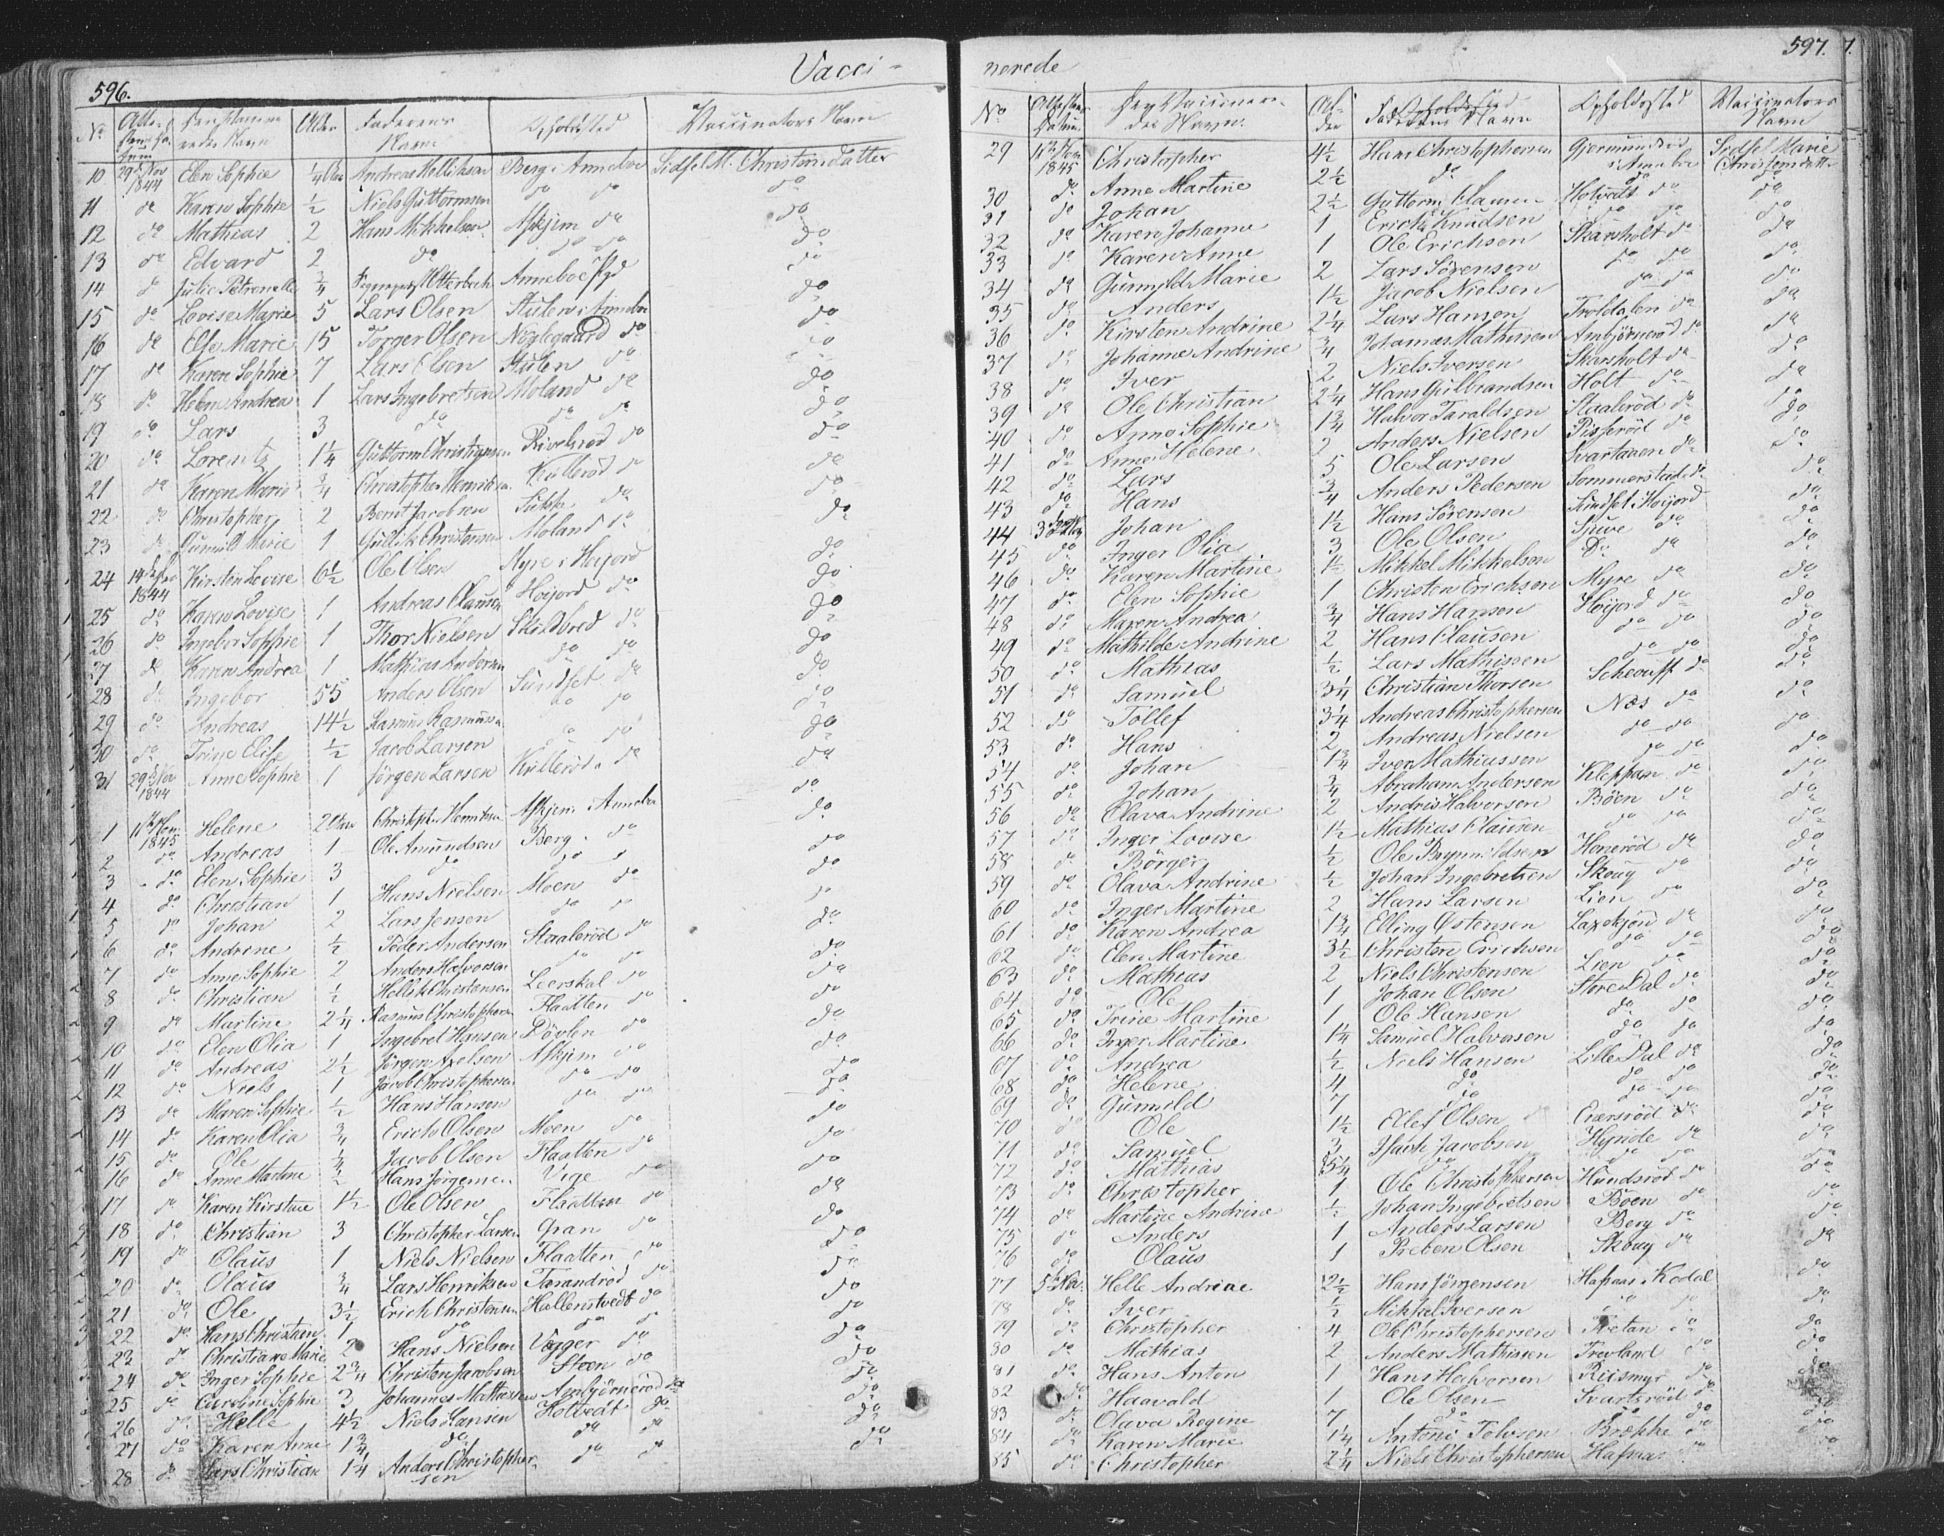 596. Vacci-
No Attestens Datum Den Vaccineredes Navn Alder Faderens Navn Opholdssted Vaccinators Navn
10 29de Nov 1844 Elen Sophie ¼ Aar Andreas Hellichsen Berg i Anneboe Sidsel M. Christensdatter
11 do Karen Sophie ½ Niels Guttormsen do do do
12 do Mathias 2 Hans Mikkelsen Askjem do do
13 do Edvard 2 do do do do
14 do Julie Petronelle ¾ Otterbech Anneboe Pgd do
15 do Lovise Marie 5 Lars Olsen Stulen i Anneboe do
16 do Else Marie 15 Torger Olsen Nøglegaard do do
17 do Karen Sophie 7 Lars Olsen Stulen do do
18 do Helene Andrea 1 Lars Ingebretsen Moland do do
19 do Lars 3 do do do do
20 do Lorentz 1¼ Guttorm Christiansen do do
21 do Karen Marie ¾ Christopher Henriksen Kullerød do do
22 do Christopher 2 Bernt Jacobsen do do
23 do Gunnild Marie 1 Gullik Christensen Moland do do
24 1844 Kirsten Lovise 6½ Ole Olsen Myre i Høijord do
25 do Karen Lovise 1 Andreas Clausen Høijord do do
26 do Ingebor Sophie 1 Thor Nielsen Skildbred do do
27 do Karen Andrea 1 Mathias Andersen do do do
28 do Ingebor 55 Anders Olsen Sundset do do
29 do Andreas 14½ Rasmus Rasmussen do do do
30 do Trine Elise ½ Jacob Larsen do do do
31 29de Nov 1844 Anne Sophie 1 Jørgen Larsen Kullerød do do
1 1845 Helene 2 Aar Christopher Henriksen Askjem i Anneboe do
2 do Andreas 1 Ole Amundsen Berg do do
3 do Elen Sophie 3 do do do
4 do Christian 1 Hans Nielsen Moen do do
5 do Johan 2 Lars Jensen do do do
6 do Andrine ½ Peder Andersen Staalerød do do
7 do Anne Sophie 2 Anders Halvorsen do do do
8 do Christian ½ Hellik Christensen Leerskal do do
9 do Martine 2¼ Rasmus Christophersen Flaatten do do
10 do Elen Olia 1 Ingebret Hansen Bøylen do do
11 do Andreas 2½ Jørgen Axelsen Askjem do do
12 do Niels 1 Jacob Christophersen do do do
13 do Maren Sophie ½ Hans Hansen do do do
14 do Karen Olia ¾ Erich Olsen Moen do do
15 do Ole ¾ Jacob Olsen Flaatten do do
16 do Anne Martine ½ Hans Jørgensen Vige do do
17 do Karen Kirstine 1½ Ole Olsen Flaatten do do
18 do Christian 3 Christopher Larsen Gran do do
19 do Olaus 1 Niels Nielsen Flaatten do do
20 do Olaus ¾ Lars Henriksen Tarandrød do do
21 do Ole 3½ Erich Christensen Hallenstvedt do do
22 do Hans Christian 1 do do do do
23 do Christiane Marie 2 Hans Nielsen Vegger do do
24 do Inger Sophie 2¾ Christen Jacobsen Steen do do
25 do Caroline Sophie 3 Johannes Mathiesen Ambjørnerød do do
26 do Helle 4½ Niels Hansen Holtvedt do do
27 do Karen Anne 1¾ do do do do
28 do Lars Christian 1¼ Anders Christophersen do do do
nerede 597.
No Attestens Datum Den Vaccineredes Navn Alder Faderens Navn Opholdssted Vaccinators Navn
29 1845 Christopher 4½ Hans Christophersen Gjermundrød i Anneboe Sidsel Marie Christensdatter
30 do Anne Martine 2½ do do do
31 do Johan 2½ Guttorm Clausen Holtvedt do do
32 do Karen Johanne 1 Erich Knudsen do do do
33 do Karen Anne 1 Ole Erichsen Skarsholt do do
34 do Gunnild Marie 2 Lars Sørensen do do do
35 do Anders 1½ Jacob Nielsen do do do
36 do Kirsten Andrine 2¼ Lars Hansen Troldalen do do
37 do Johanne Andrine ¾ Johannes Mathisen Ambjørnerød do do
38 do Iver 2 Niels Iversen Skarsholt do do
39 do Ole Christian 2¼ Hans Gulbrandsen Holt do do
40 do Anne Sophie 1¾ Halvor Taraldsen Staalerød do do
41 do Anne Helene 2 Anders Nielsen Pisserød do do
42 do Lars 5 Ole Larsen Svartaaen do do
43 do Hans ¾ Anders Pedersen Sommerstad do do
44 Johan 1½ Hans Sørensen Sundset i Høijord do
45 do Inger Olia 3 Ole Olsen Stuve do do
46 do Karen Martine 1½ Mikkel Mikkelsen Do do do
47 do Elen Sophie 1 Christen Erichsen Myre do do
48 do Maren Andrea ¾ Hans Hansen Høijord do do
49 do Mathilde Andrine 2 Hans Clausen do do do
50 do Mathias ½ Lars Mathissen do do do
51 do Samuel 3¼ Christian Thorsen Scheauff do do
52 do Tollef 3¼ Andreas Christophersen Næs do do
53 do Hans 2 Andreas Nielsen do do do
54 do Johan 1¾ Iver Mathiassen do do do
55 do Johan ¾ Abraham Andersen Kleppan do do
56 do Olava Andrine 2 Andreas Halvorsen Bøen do do
57 do Inger Lovise 1½ Mathias Clausen do do do
58 do Børger ½ Ole Brynnildsen Hanerød do do
59 do Olava Andrine ½ Johan Ingebretsen Skoug do do
60 do Inger Martine 2 Hans Larsen Lien do do
61 do Karen Andrea 1¾ Elling Østensen Laxekjøn do do
62 do Elen Martine 3½ Christen Erichsen do do do
63 do Mathias 2 Niels Christensen Lien do do
64 do Ole 1 Johan Olsen Store Dal do do
65 do Trine Martine 1 Ole Hansen do do do
66 do Inger Martine 1¼ Samuel Halvorsen do do do
67 do Andrea ½ Niels Hansen Lille Dal do do
68 do Helene 4 do do do do
69 do Gunnild 7 do do do do
70 do Ole 1½ Ellef Olsen do do
71 do Samuel 3 Isach Jacobsen Hynde do do
72 do Mathias 5¼ do do do do
73 do Christopher 1 Ole Christophersen Hundsrød do do
74 do Martine Andrine ½ Johan Ingebretsen Bøen do do
75 do Anders 1 Anders Larsen Berg do do
76 do Olaus 1 Preben Olsen Skoug do do
77 5te Nov. Helle Andreae 2½ Hans Jørgensen Hafnas i Kodal do
78 do Iver ½ Mikkel Iversen do do do
79 do Christopher 4 Ole Christophersen Prestan do do
80 do Mathias 2 Anders Mathisen Trevland do do
81 do Hans Anton 1 Hans Halvorsen Riismyr do do
82 do Haavald 1 Ole Olsen Svartsrød do do
83 do Olava Regine 7 do do do do
84 do Karen Marie 1¼ Anton Tolvsen Brekke do do
85 do Christopher 2¼ Niels Christophersen Hafnas do do